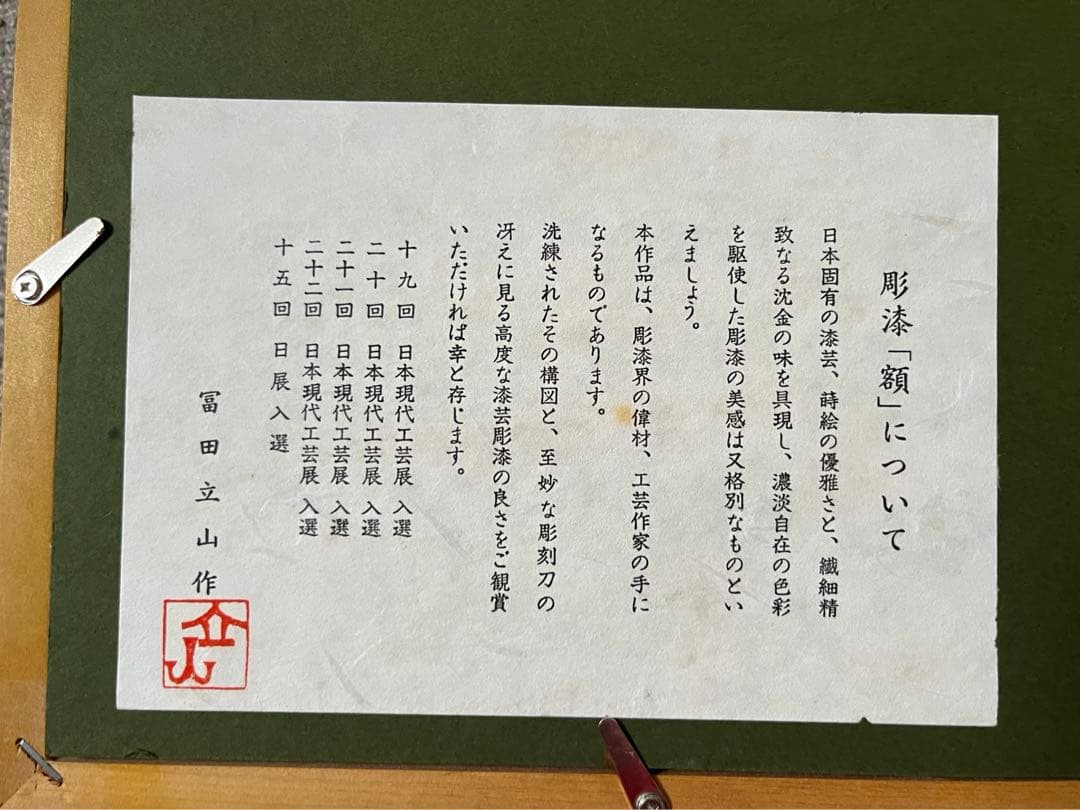 彫漆「額」について
日本固有の漆芸、蒔絵の優雅さと、繊細精
致なる沈金の味を具現し、濃淡自在の色彩
を駆使した彫漆の美感は又格別なものとい
えましょう。
本作品は、彫漆界の偉材、工芸作家の手に
なるものであります。
洗練されたその構図と、至妙な彫刻刀の
冴えに見る高度な漆芸彫漆の良さをご観賞
いただければ幸と存じます。
十九回 日本現代工芸展 入選
二十回 日本現代工芸展 入選
二十一回 日本現代工芸展 入選
二十二回 日本現代工芸展 入選
十五回 日展入選
冨田立山作
立山